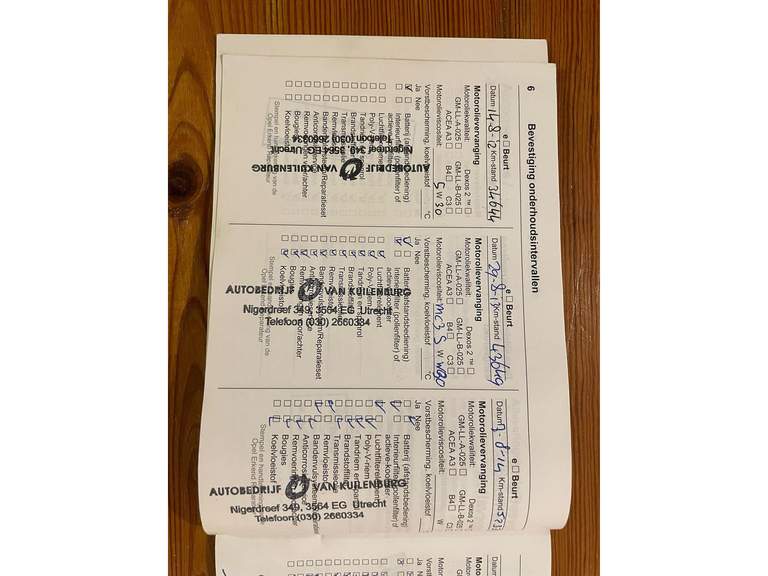 6 Bevestiging onderhoudsintervallen
e □ Beurt
Datum 14-8-12 Km-stand 34644
Motorolievervanging
Motoroliekwaliteit: Dexos 2 ™ □
GM-LL-A-025 □ GM-LL-B-025 □
ACEA A3 □ B4 □ C3 □
Motorolieviscositeit: 5 W 30
Vorstbescherming, koelvloeistof °C
Ja Nee
Batterij (afstandsbediening)
Interieurfilter (pollenfilter) of
actieve-koolfilter
Luchtfilterelement
Poly-V-riem
Tandriem en
Brandstoffilter
Transmissie
Remvloeistof
Bandenvulset/Reparatieset
Anticorrosie
Remvoering voor/achter
Bougies
Koelvloeistof
Stempel en handtekening van de
Opel Erkend Reparateur
AUTOBEDRIJF VAN KUILENBURG
Nigerdreef 349, 3564 EG Utrecht
Telefoon (030) 2660334
e □ Beurt
Datum 29-8-13 Km-stand 43649
Motorolievervanging
Motoroliekwaliteit: Dexos 2 ™ □
GM-LL-A-025 □ GM-LL-B-025 □
ACEA A3 □ B4 □ C3 □
Motorolieviscositeit: W
Vorstbescherming, koelvloeistof °C
Ja Nee
Batterij (afstandsbediening)
Interieurfilter (pollenfilter) of
actieve-koolfilter
Luchtfilterelement
Poly-V-riem
Tandriem en
Brandstoffilter
Transmissie
Remvloeistof
Reparatieset
voor/achter
Bougies
Koelvloeistof
Stempel en handtekening van de
Opel Erkend Reparateur
AUTOBEDRIJF VAN KUILENBURG
Nigerdreef 349, 3564 EG Utrecht
Telefoon (030) 2660334
e □ Beurt
Datum -8-14 Km-stand
Motorolievervanging
Motoroliekwaliteit: Dexos 2 ™ □
GM-LL-A-025 □ GM-LL-B-025 □
ACEA A3 □ B4 □ C3 □
Motorolieviscositeit: W
Vorstbescherming, koelvloeistof
Ja Nee
Batterij (afstandsbediening)
Interieurfilter (pollenfilter) of
actieve-koolfilter
Luchtfilterelement
Poly-V-riem
Tandriem en
Brandstoffilter
Transmissie
Remvloeistof
Anticorrosie
Remvoering
Bougies
Koelvloeistof
Stempel en handtekening
Opel Erkend
AUTOBEDRIJF VAN KUILENBURG
Nigerdreef 349, 3564 EG Utrecht
Telefoon (030) 2660334